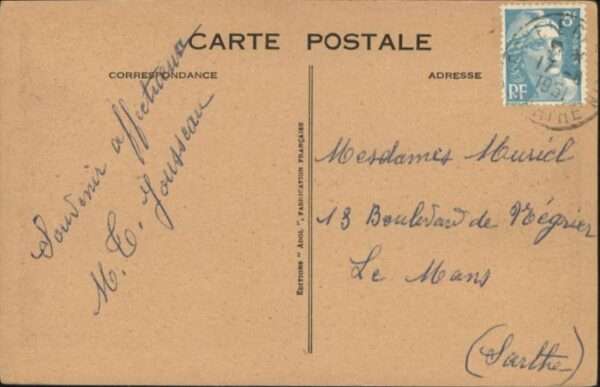 CARTE POSTALE
CORRESPONDANCE
ADRESSE
Souvenir affectueux
M. T. Jousseau
EDITIONS " ADOL ", FABRICATION FRANÇAISE
RF
Mesdames Muriel
13 Boulevard de Négrier
Le Mans
(Sarthe)